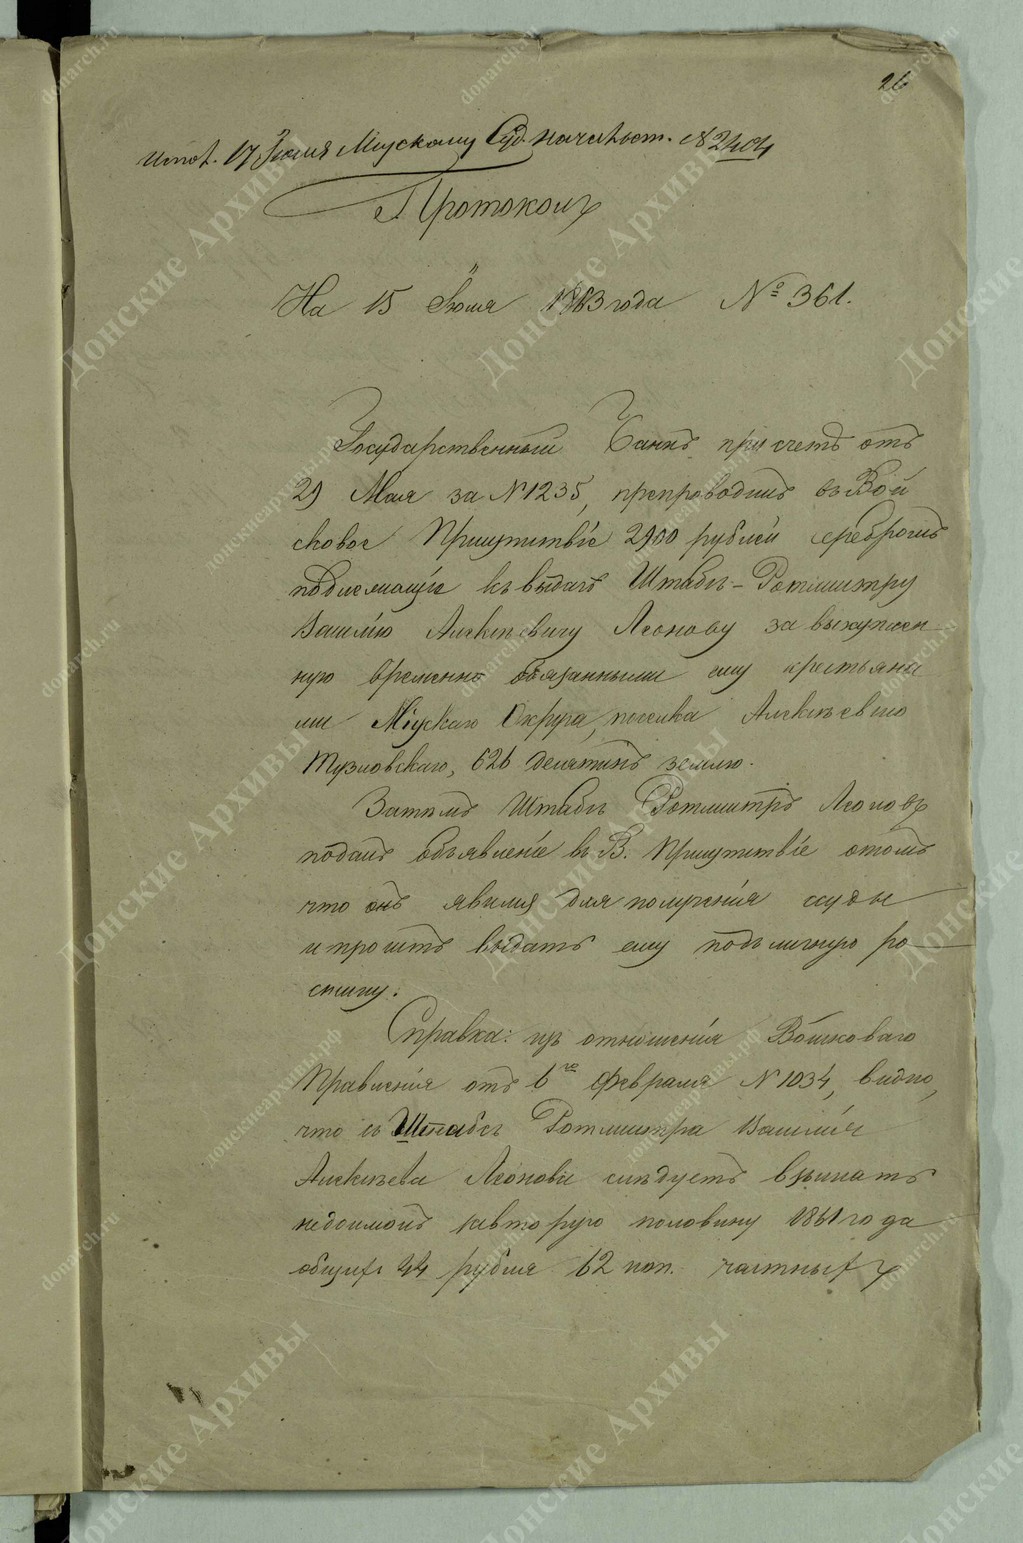 26
Испол. 17 Июля Міускому Суд. Начальст. № 2404
Протоколъ
На 15 Іюля 1863 года № 361.
Государственный Банкъ, при счетѣ отъ
29 Мая за № 1235, препроводилъ въ Вой
сковое Присутствіе 2900 рублей серебромъ
подлежащіе къ выдачѣ Штабъ-Ротмистру
Василію Алексѣевичу Леонову за выкуплен
ную временно обязанными ему крестьяна
ми Міускаго Округа, поселка Алексѣевско
Тузловскаго, 626 десятинъ землю.
Затѣмъ Штабъ Ротмистръ Леоновъ
подалъ объявленіе въ В. Присутствіе о томъ
что онъ явился для полученія ссуды
и проситъ выдать ему подъ личную ро
списку.
Справка: изъ отношенія Войсковаго
Правленія отъ 6го Февраля № 1034, видно,
что съ Штабъ Ротмистра Василія
Алексѣева Леонова слѣдуетъ взыскать
недоимокъ за вторую половину 1861 года
общихъ 44 рубля 62 коп. частныхъ
Донские Архивы
donarch.ru
донскиеархивы.рф